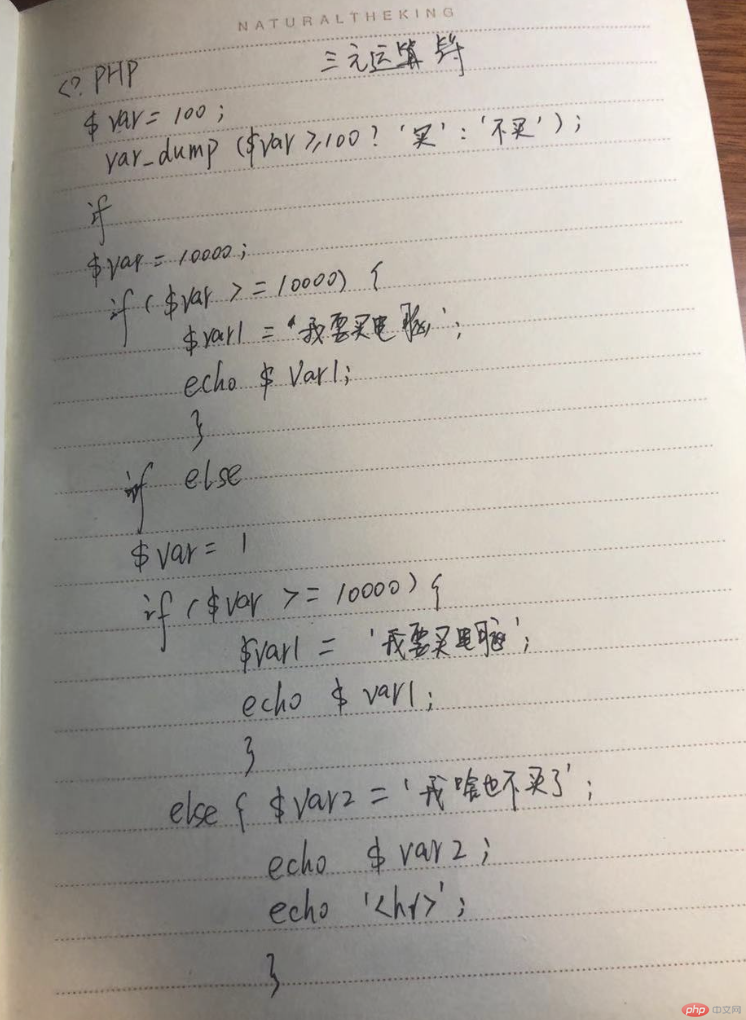 NATURALTHEKING
三元运算符
<? PHP
$var = 100;
var_dump ($var >,100 ? '买' : '不买');
if
$var = 10000;
if ($var >= 10000) {
$var1 = '我要买电脑';
echo $ Var1;
}
if else
$var = 1
if ($var >= 10000) {
$var1 = '我要买电脑';
echo $ var1;
}
else { $var2 = '我啥也不买了';
echo $ var2;
echo '<hr>';
}
php 中文网